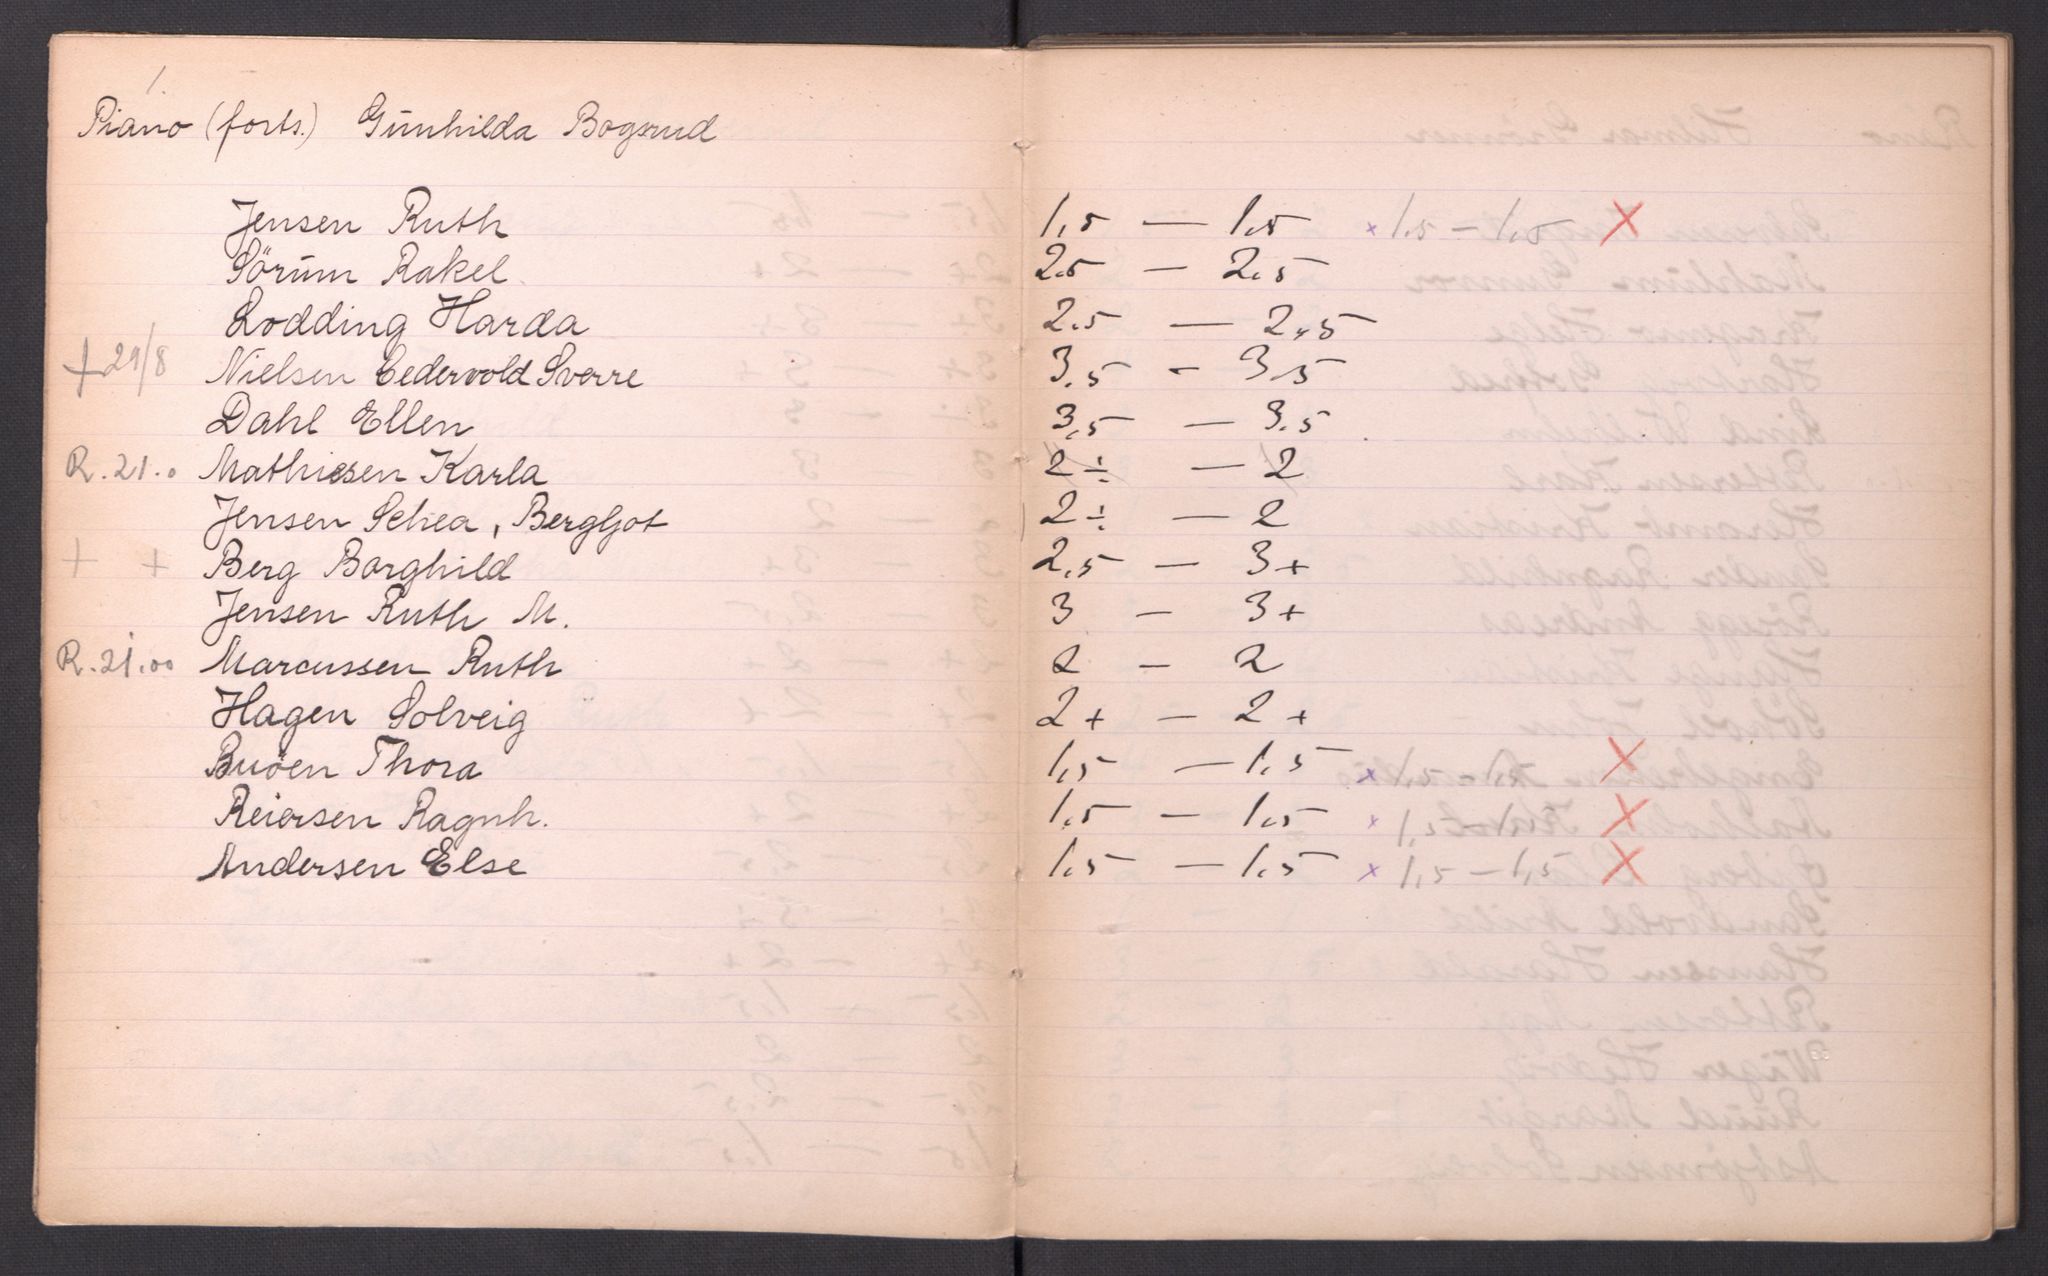 1.
Piano (forts.) Gunhilda Bogsrud
Jensen Ruth 1,5 — 1,5 × 1,5 — 1,5 X
Sörum Rakel 2,5 — 2,5
Lodding Harda 2,5 — 2,5
+ 29/8 Nielsen Cedervold Sverre 3,5 - 3,5
Dahl Ellen 3,5 — 3,5
R. 21.0 Mathiesen Karla 2÷ — 2
Jensen Schea, Bergljot 2÷ — 2
+ + Berg Borghild 2,5 — 3+
Jensen Ruth M. 3 — 3+
R. 21.00 Marcussen Ruth 2 — 2
Hagen Solveig 2+ — 2+
Buöen Thora 1,5 — 1,5 × 1,5 – 1,5 X
Reiersen Ragnh. 1,5 — 1,5 × X
Andersen Else 1,5 — 1,5 × 1,5 — 1,5 X